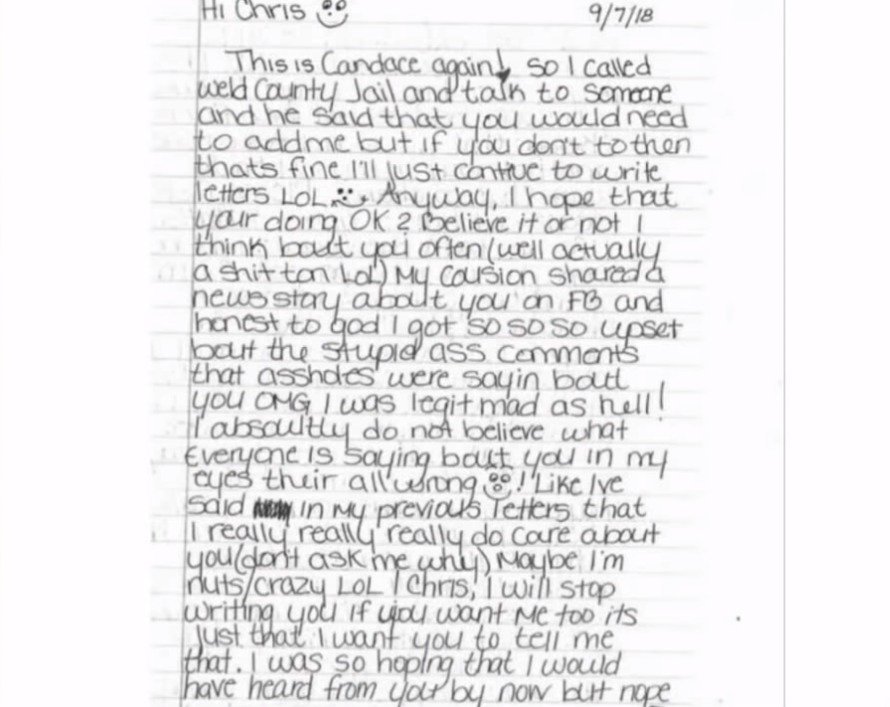 Hi Chris
9/7/18
This is Candace again! So I called
Weld County Jail and talk to someone
and he said that you would need
to add me but if you don't to then
thats fine I'll just contiue to write
letters LOL. Anyway, I hope that
your doing OK? Believe it or not I
think bout you often (well actually
a shit ton LoL) My cousion shared a
news story about you on FB and
honest to god I got so so so upset
bout the stupid ass comments
that assholes were sayin bout
you OMG I was legit mad as hell!
I absoultly do not believe what
Everyone is saying bout you in my
eyes their all wrong! Like Ive
said in my previous letters that
I really really really do care about
you (don't ask me why) Maybe I'm
nuts/crazy LOL! Chris, I will stop
writing you if you want me too its
just that I want you to tell me
that. I was so hoping that I would
have heard from you by now but nope